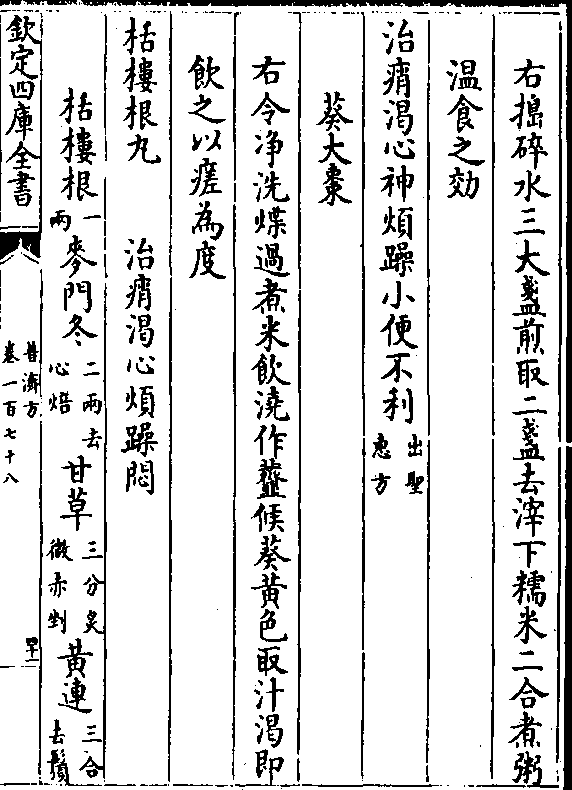 右搗碎水三大盞煎取二盞去滓下糯米二合煮粥
温食之効
治痟渴心神煩躁小便不利出聖恵方
葵大棗
右令净洗煠過煮米飲澆作虀候葵黃色取汁渴即
飲之以瘥為度
栝樓根丸　治痟渴心煩躁悶
栝樓根一兩麥門冬二兩去心焙甘草三分炙微赤剉黃連三合去鬚
欽定四庫全書
普濟方
卷一百七十八
四十一